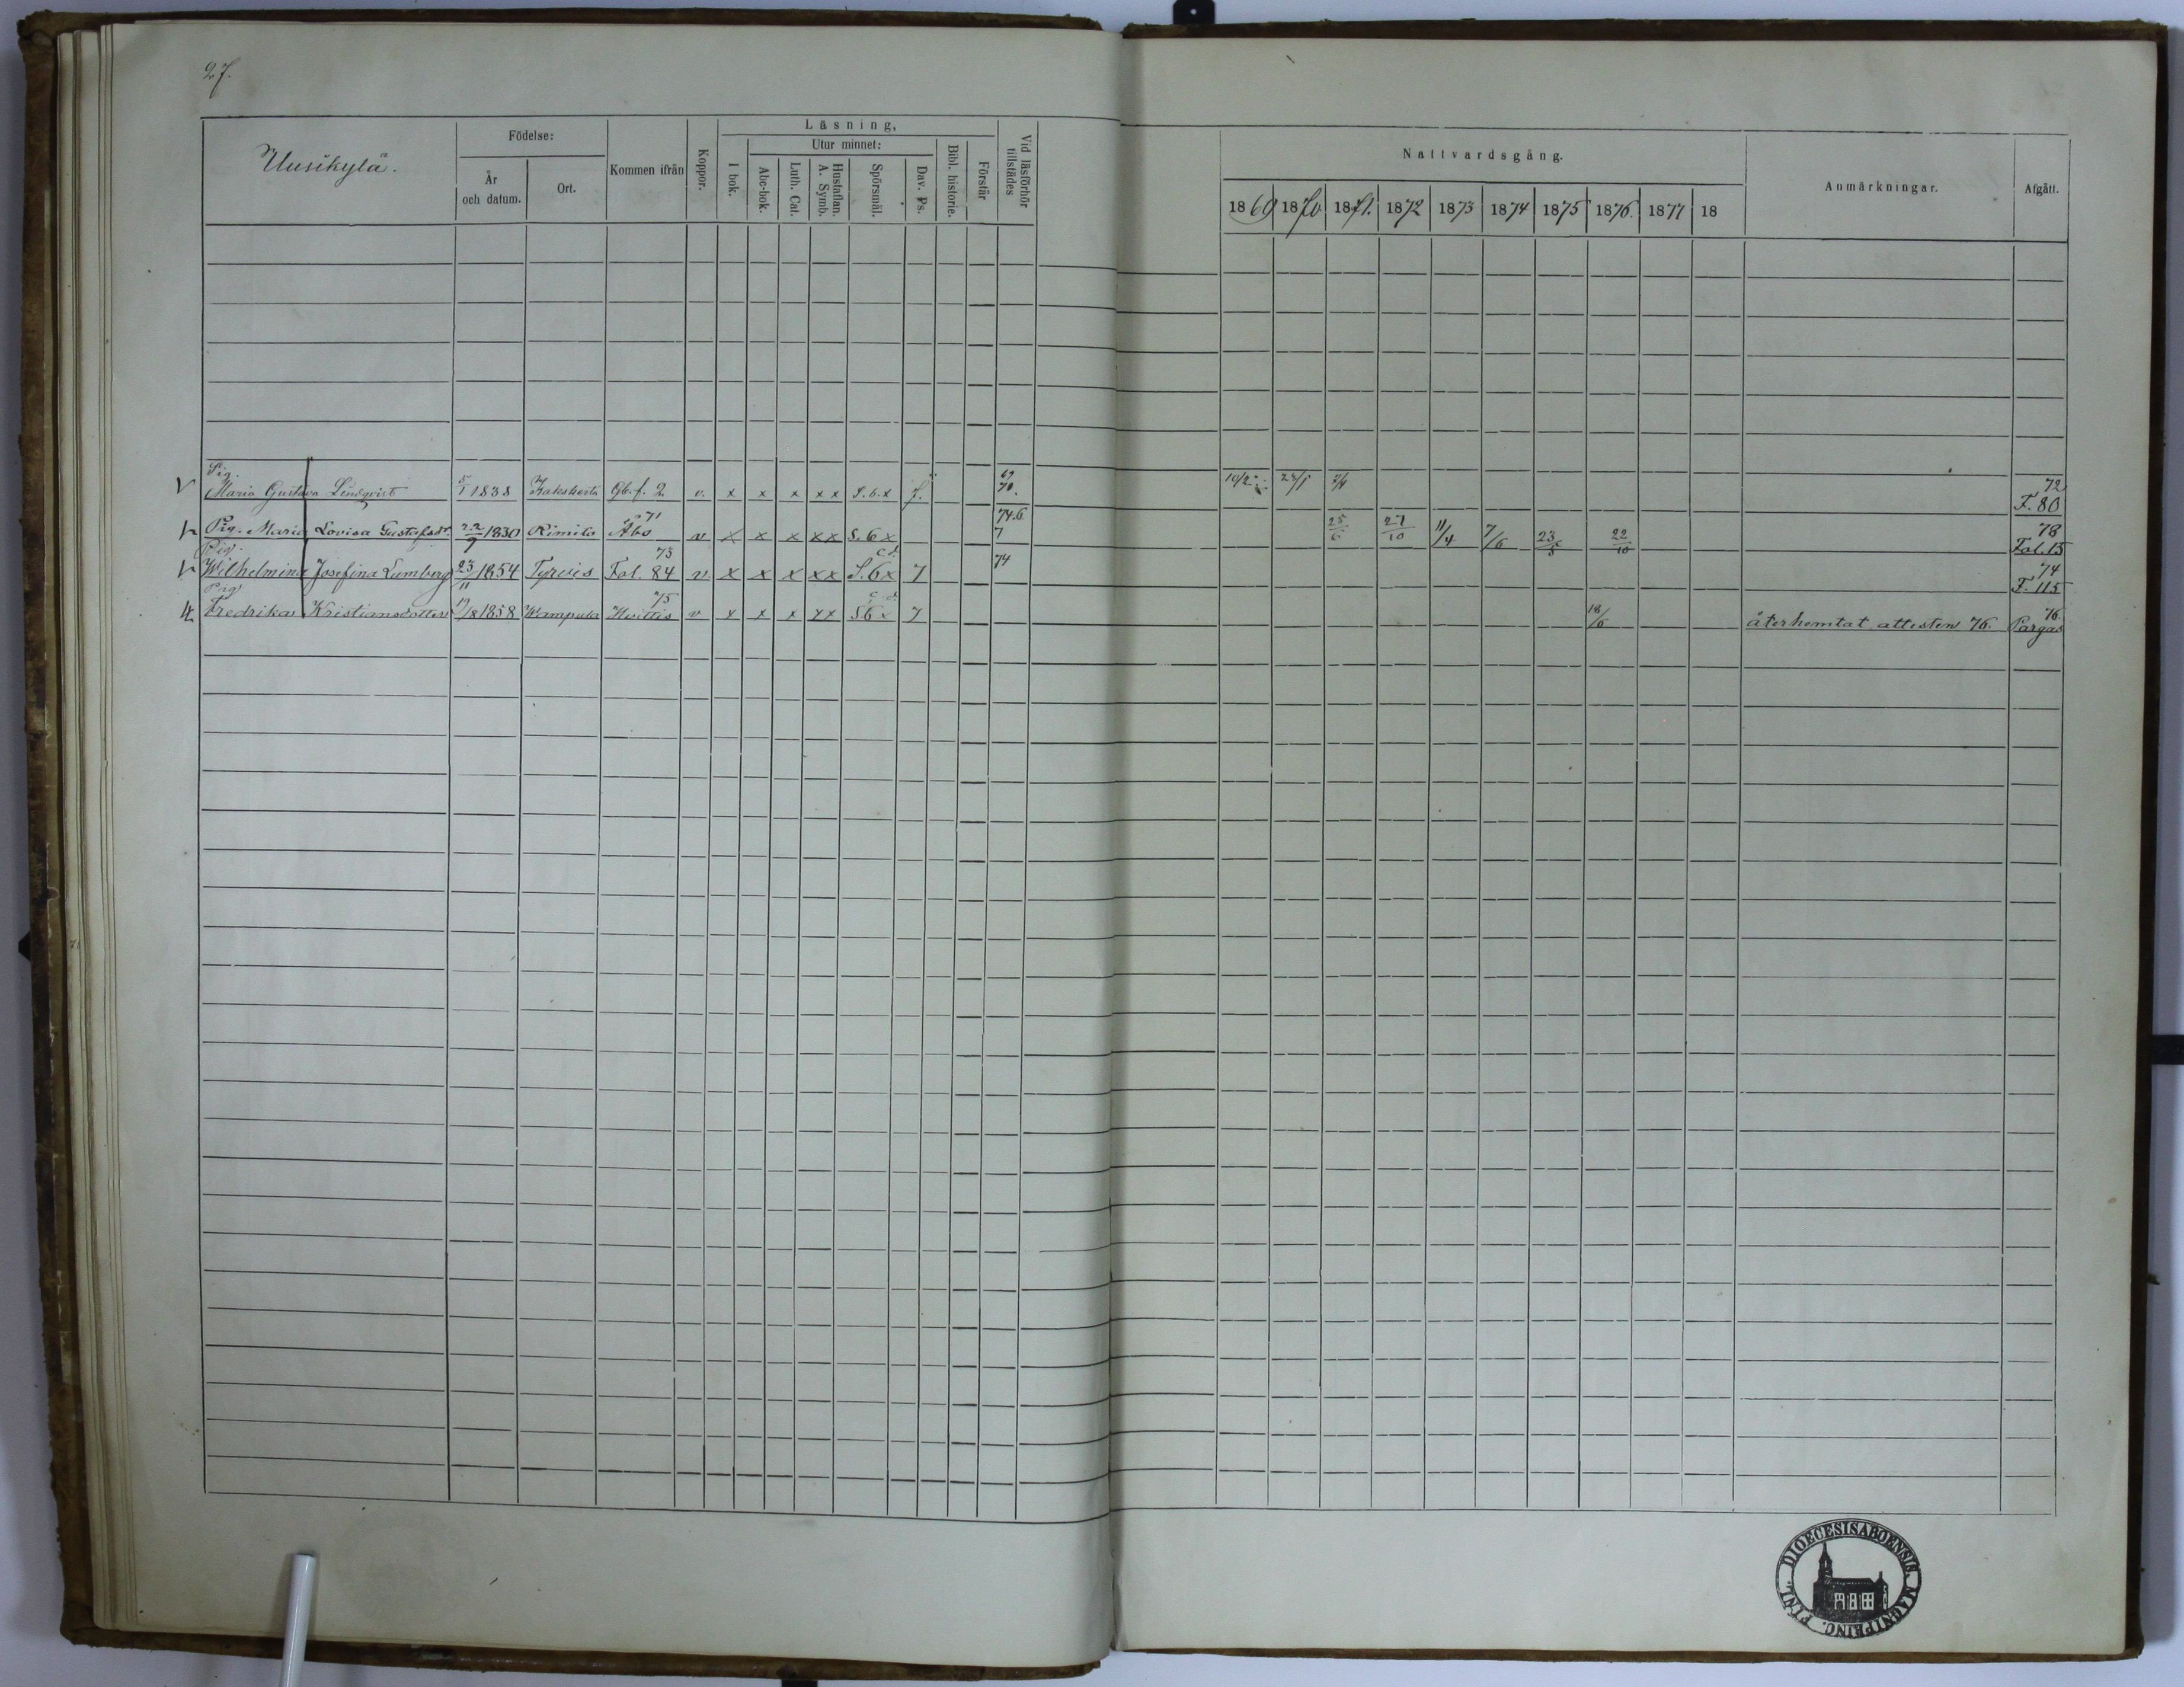 27.
Uusikylä.
Födelse:
År och datum.
Ort.
Kommen ifrån
Koppor.
Läsning,
I bok.
Utur minnet:
Abc-bok.
Luth. Cat.
Hustaflan. A. Symb.
Spörsmål.
Dav. Ps.
Bibl. historie.
Förstår
Vid läsförhör tillstädes
Nattvardsgång.
1869 1870 1871. 1872 1873 1874 1875 1876. 1877 18
Anmärkningar.
Afgått.
Pig. Maria Gustava Lindqvist 5/1 1838 Kakskerta Gb. f. 2 v. x x x x x S. b. x 7. 69 70. 10/2 24/1 72 F. 80
Pig. Maria Lovisa Gustafsdr. 22/9 1830 Rimito Åbo 71 v x x x x x S. 6 x 74.6. 7 25/6 27/10 11/4 7/6 23/5 22/10 78 Fol. 15
Pig. Wilhelmina Josefina Lumberg 23/11 1854 Tyrvis Fol. 84 73 v. x x x x x S. 6 x c. d. 7 74 74 F. 115
Pig. Fredrika Kristiansdotter 19/8 1858 Kumpula Huittis 75 v x x x x x S 6 x c d 7 18/6 återhemtat attesten 76. 76. Pargas
DIOECESIS ABOENSIS. MAGNI PRINC. FINL.